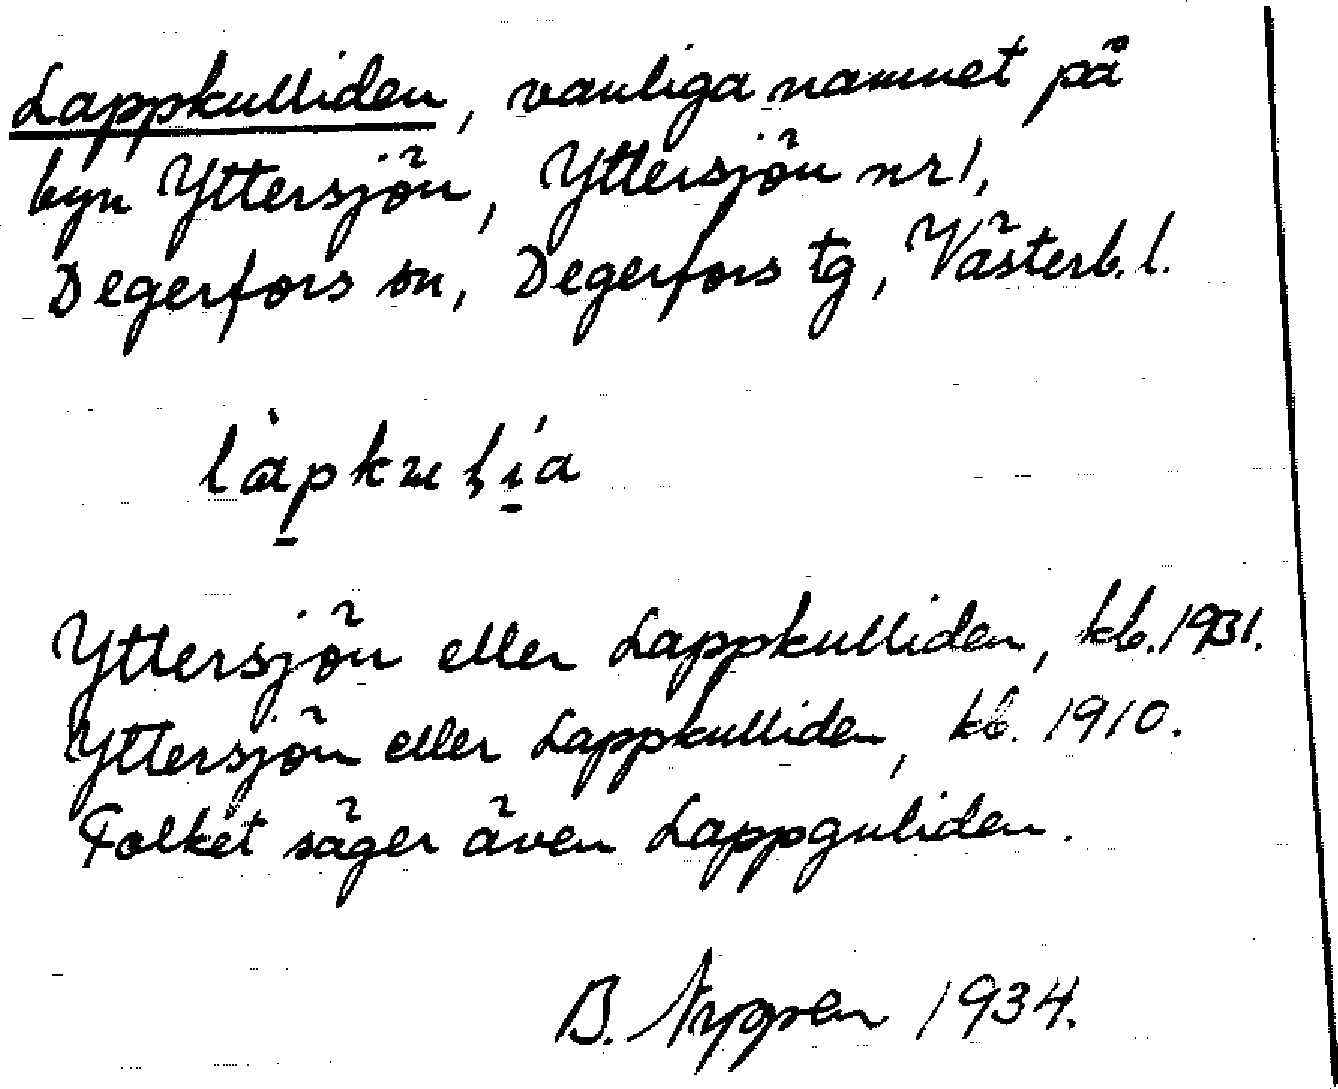 Lappkulliden, vanliga namnet på
byn Yttersjön, Yttersjön nr 1,
Degerfors sn, Degerfors tg, Västerb. l.
Yttersjön eller Lappkulliden, kb. 1931.
Yttersjön eller Lappkulliden, kb. 1910.
Folket säger även Lappguliden.
B. 1934.